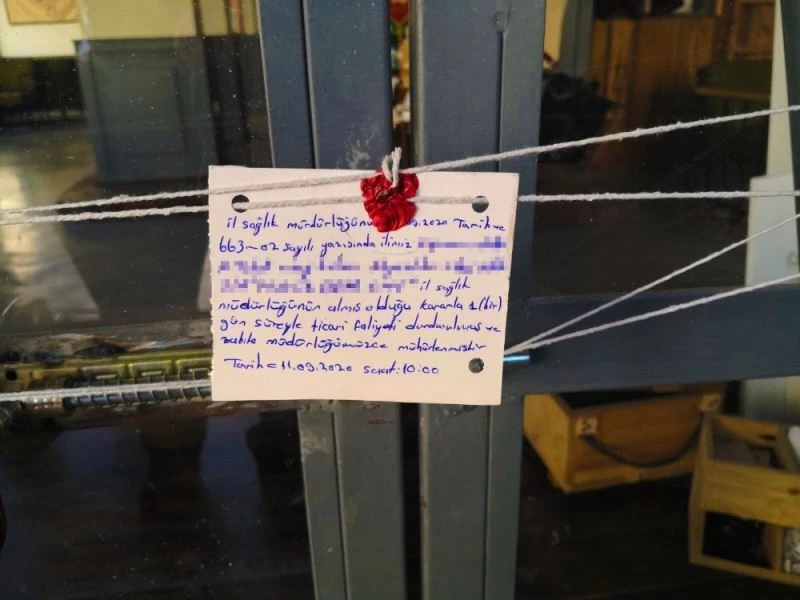 il sağlık müdürlüğünü 09.2020 Tarih ve
663-02 sayılı yazısında ilimiz
il sağlık
müdürlüğünün almış olduğu kararla 1 (bir)
gün süreyle ticari faliyeti durdurulmuş ve
zabıta müdürlüğümüzce mühürlenmiştir
Tarih = 11.09.2020 saat: 10:00